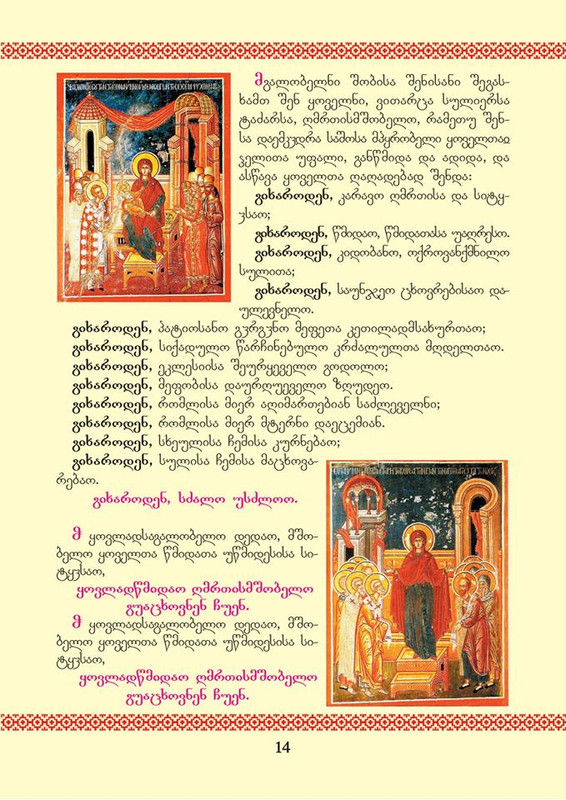 მგალობელნი შობისა შენისანი შეგას-
ხამთ შენ ყოველნი, ვითარცა სულიერსა
ტაძარსა, ღმრთისმშობელო, რამეთუ შენ-
სა დაემკჳდრა საშოსა მპყრობელი ყოველთაჲ
ჴელითა უფალი, განწმიდა და ადიდა, და
ასწავა ყოველთა ღაღადებად შენდა:
გიხაროდენ, კარავო ღმრთისა და სიტყ-
ჳსაო;
გიხაროდენ, წმიდაო, წმიდათასა უაღრესო.
გიხაროდენ, კიდობანო, ოქროვანქმნილო
სულითა;
გიხაროდენ, საუნჯეო ცხოვრებისაო და-
ულევნელო.
გიხაროდენ, პატიოსანო გჳრგჳნო მეფეთა კეთილადმსახურთაო;
გიხაროდენ, სიქადულო წარჩინებულო კრძალულთა მღდელთაო.
გიხაროდენ, ეკლესიისა შეურყეველო გოდოლო;
გიხაროდენ, მეფობისა დაურღუეველო ზღუდეო.
გიხაროდენ, რომლისა მიერ აღიმართებიან საძლეველნი;
გიხაროდენ, რომლისა მიერ მტერნი დაეცემიან.
გიხაროდენ, სხეულისა ჩემისა კურნებაო;
გიხაროდენ, სულისა ჩემისა მაცხოვა-
რებაო.
გიხაროდენ, სძალო უსძლოო.
ჵ ყოვლადსაგალობელო დედაო, მშო-
ბელო ყოველთა წმიდათა უწმიდესისა სი-
ტყჳსაო,
ყოვლადწმიდაო ღმრთისმშობელო
გუაცხოვნენ ჩუენ.
ჵ ყოვლადსაგალობელო დედაო, მშო-
ბელო ყოველთა წმიდათა უწმიდესისა სი-
ტყჳსაო,
ყოვლადწმიდაო ღმრთისმშობელო
გუაცხოვნენ ჩუენ.
14